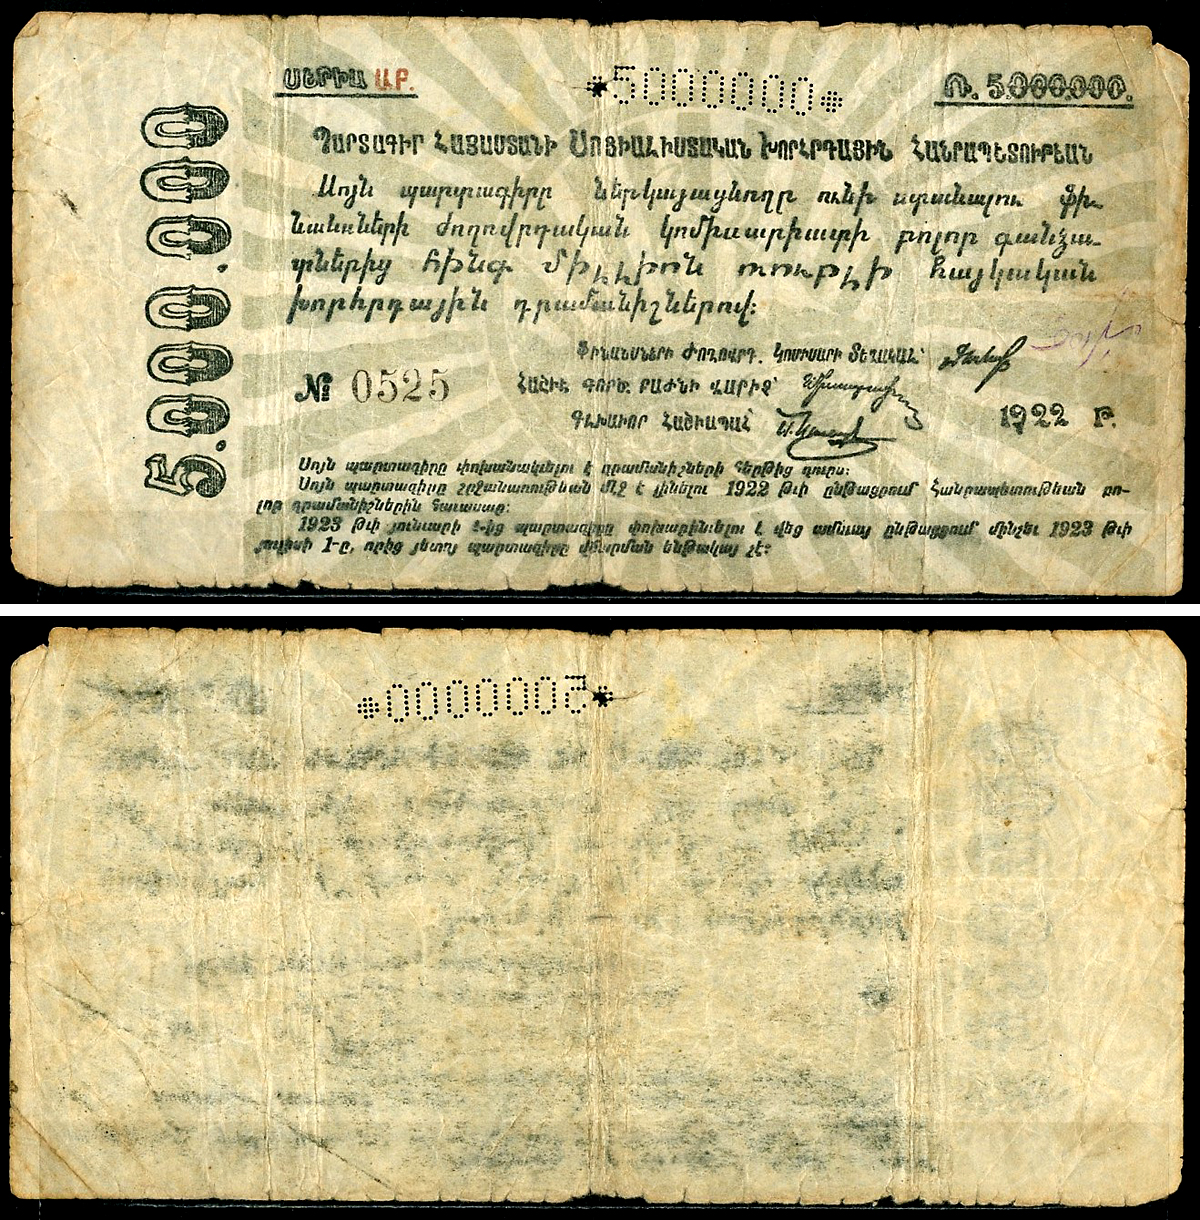 ՍԵՐԻԱ Ա.Բ.
5000000
Ռ. 5.000.000.
5.000.000
ՊԱՐՏԱԳԻՐ ՀԱՅԱՍՏԱՆԻ ՍՈՑԻԱԼԻՍՏԱԿԱՆ ԽՈՐՀՐԴԱՅԻՆ ՀԱՆՐԱՊԵՏՈՒԹԵԱՆ
Սոյն պարտագիրը ներկայացնողը ունի ստանալու ֆի-
նանսների ժողովրդական կոմիսարիատի բոլոր գանձա-
րաններից հինգ միլլիոն ռուբլի հայկական
խորհրդային դրամանիշներով:
ՖԻՆԱՆՍՆԵՐԻ ԺՈՂՈՎՐԴ. ԿՈՄԻՍԱՐԻ ՏԵՂԱԿԱԼ՝
№ 0525
ՀԱՇԻՒ. ԳՈՐԾ. ԲԱԺՆԻ ՎԱՐԻՉ՝
ԳԼԽԱՒՈՐ ՀԱՇԻԱՊԱՀ՝
1922 Թ.
Սոյն պարտագիրը փոխանակւելու է դրամանիշների հերթից դուրս:
Սոյն պարտագիրը շրջանառութեան մէջ է լինելու 1922 թւի ընթացքում Հանրապետութեան բո-
լոր դրամանիշներին հաւասար:
1923 թւի յունւարի 1-ից պարտագիրը փոխարինւելու է վեց ամսւայ ընթացքում մինչեւ 1923 թւի
յուլիսի 1-ը, որից յետոյ պարտագիրը վճարման ենթակայ չէ:
5000000